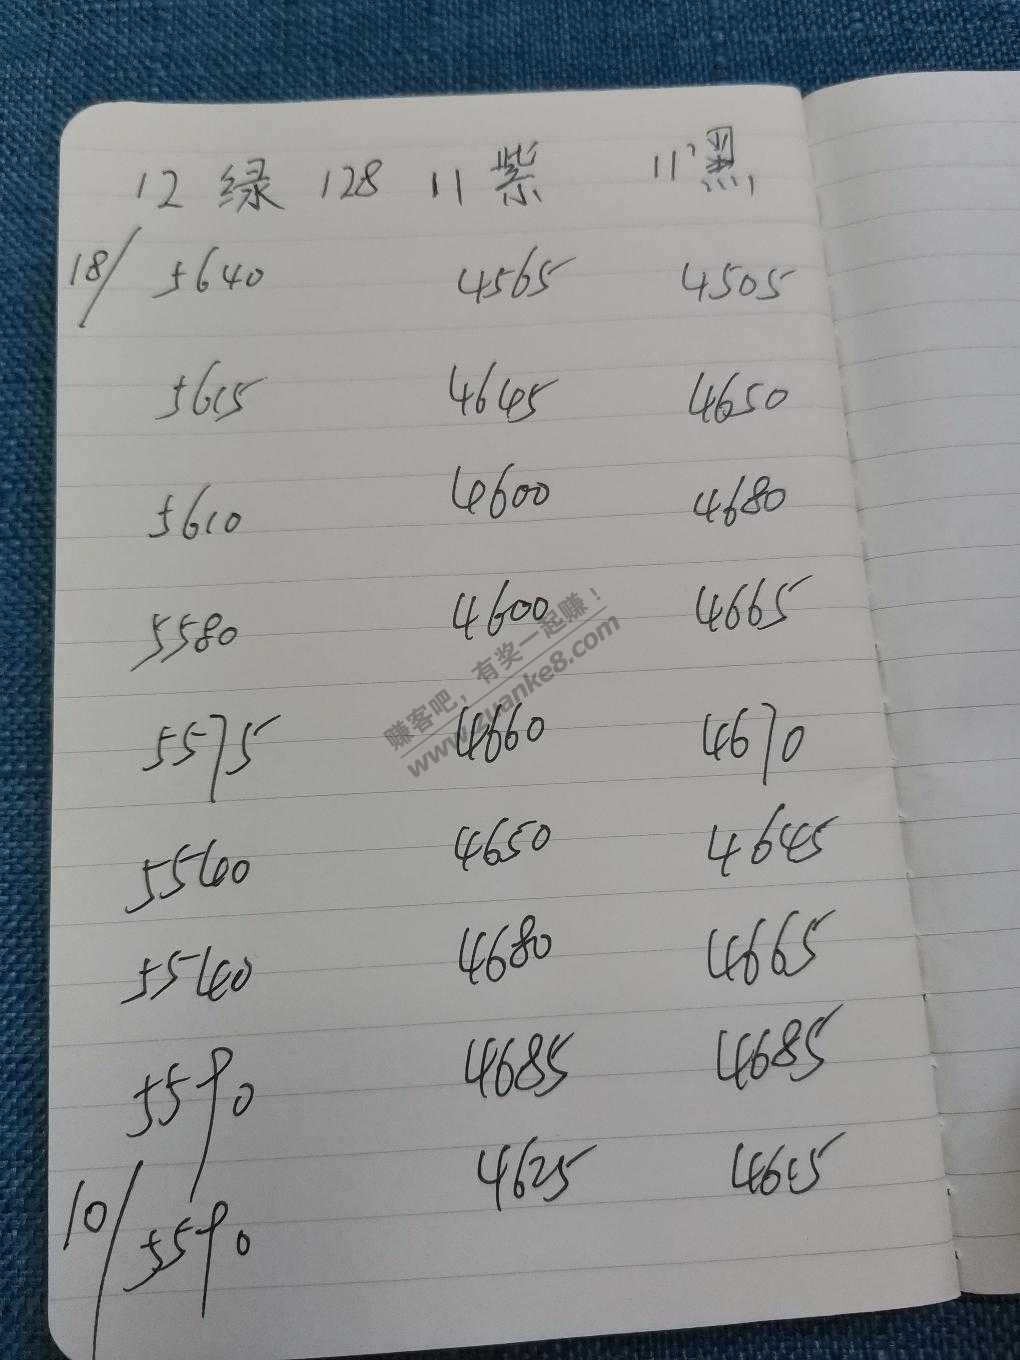 12 绿 128 11 紫 11 黑
18/ 5640 4565 4505
5615 4645 4650
5610 4600 4680
5580 4600 4665
5575 4660 4670
5540 4650 4645
5540 4680 4665
5590 4685 4685
4625 4615
10/ 5590
赚客吧，有奖一起赚！
www.zuanke8.com